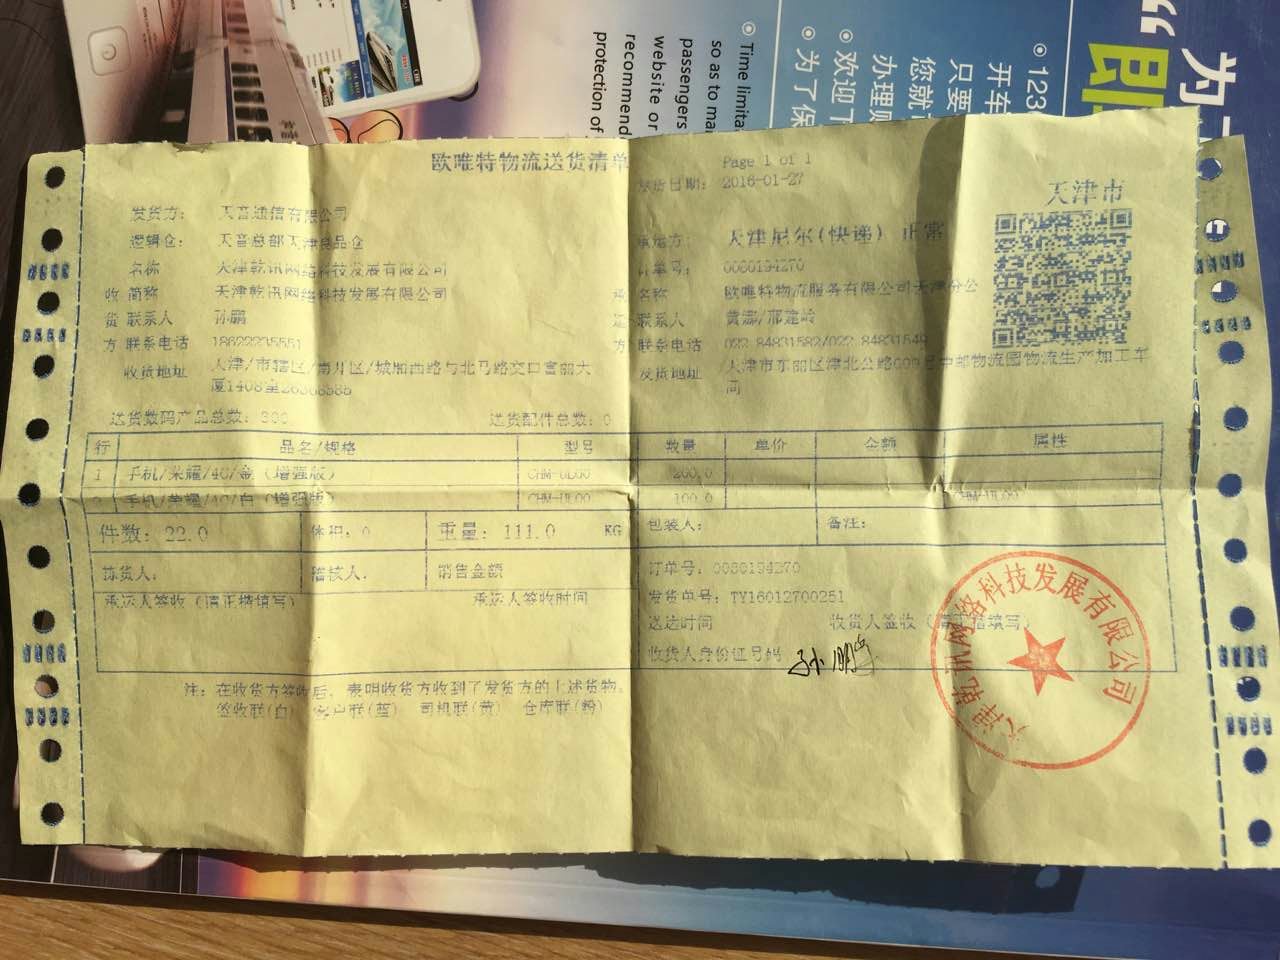 为
“
123
开车
只要
您就
办理
欢迎
为了保
Time limita
so as to ma
passengers
website or
recommend
protection of
欧唯特物流送货清单
Page 1 of 1
发货日期: 2016-01-27
天津市
发货方: 天音通信有限公司
逻辑仓: 天音总部天津良品仓
承运方: 天津尼尔(快递) 正常
名称 天津乾讯网络科技发展有限公司
订单号: 0080194270
收 简称 天津乾讯网络科技发展有限公司
承 名称 欧唯特物流服务有限公司天津分公
货 联系人 孙鹏
运 联系人 黄娜/邢建岭
方 联系电话 18622235551
方 联系电话 022-84831582/022-84831549
收货地址 天津/市辖区/南开区/城厢西路与北马路交口富力大
厦1408室
发货地址 天津市东丽区津北公路 号中邮物流园物流生产加工车
间
送货数码产品总数: 300 送货配件总数: 0
行 品名/规格 型号 数量 单价 金额 属性
1 手机/荣耀/4C/金(增强版) CHM-UL00 200.0
2 手机/荣耀/4C/白(增强版) CHM-UL00 100.0 CHM-UL00
件数: 22.0 体积: 0 重量: 111.0 KG 包装人: 备注:
拣货人: 稽核人: 销售金额 订单号: 0080194270
承运人签收(请正楷填写) 承运人签收时间 发货单号: TY16012700251
送达时间 收货人签收(请正楷填写)
收货人身份证号码 孙鹏
注: 在收货方签收后, 表明收货方收到了发货方的上述货物。
签收联(白) 客户联(蓝) 司机联(黄) 仓库联(粉)
天津乾讯网络科技发展有限公司